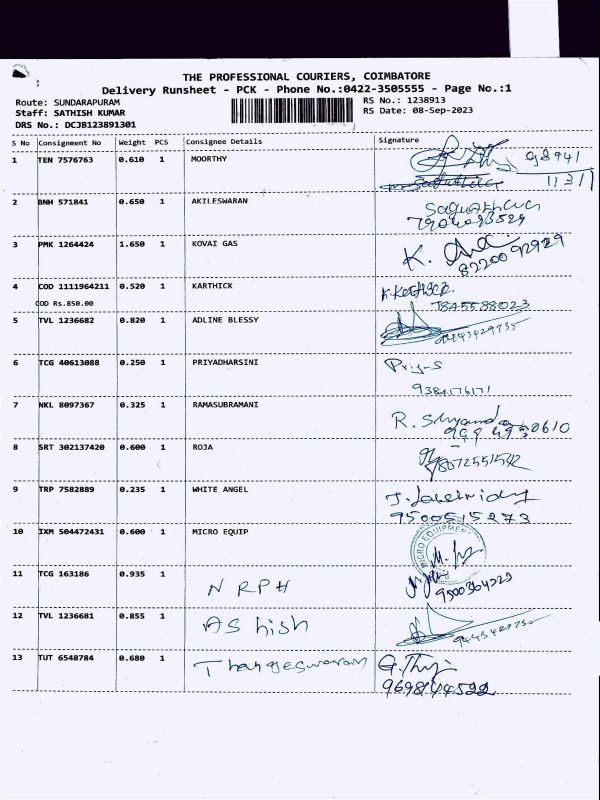 THE PROFESSIONAL COURIERS, COIMBATORE
Delivery Runsheet - PCK - Phone No.:0422-3505555 - Page No.:1
Route: SUNDARAPURAM RS No.: 1238913
Staff: SATHISH KUMAR RS Date: 08-Sep-2023
DRS No.: DCJB123891301
S No Consignment No Weight PCS Consignee Details Signature
1 TEN 7576763 0.610 1 MOORTHY 98941
11311
2 BNH 571841 0.650 1 AKILESWARAN
3 PMK 1264424 1.650 1 KOVAI GAS K.
8220092929
4 COD 1111964211 0.520 1 KARTHICK K.Karthick
COD Rs.850.00 7845588023
5 TVL 1236682 0.820 1 ADLINE BLESSY 9443429735
6 TCG 40613088 0.250 1 PRIYADHARSINI Priya-S
9384176171
7 NKL 8097367 0.325 1 RAMASUBRAMANI R.
8 SRT 302137420 0.600 1 ROJA
8072551542
9 TRP 7582889 0.235 1 WHITE ANGEL
9500515273
10 IXM 504472431 0.600 1 MICRO EQUIP MICRO EQUIPMENT
11 TCG 163186 0.935 1 NRPH 9500364323
12 TVL 1236681 0.855 1 AShish 9443429735
13 TUT 6548784 0.680 1 Thangeswaram G.
9698144522